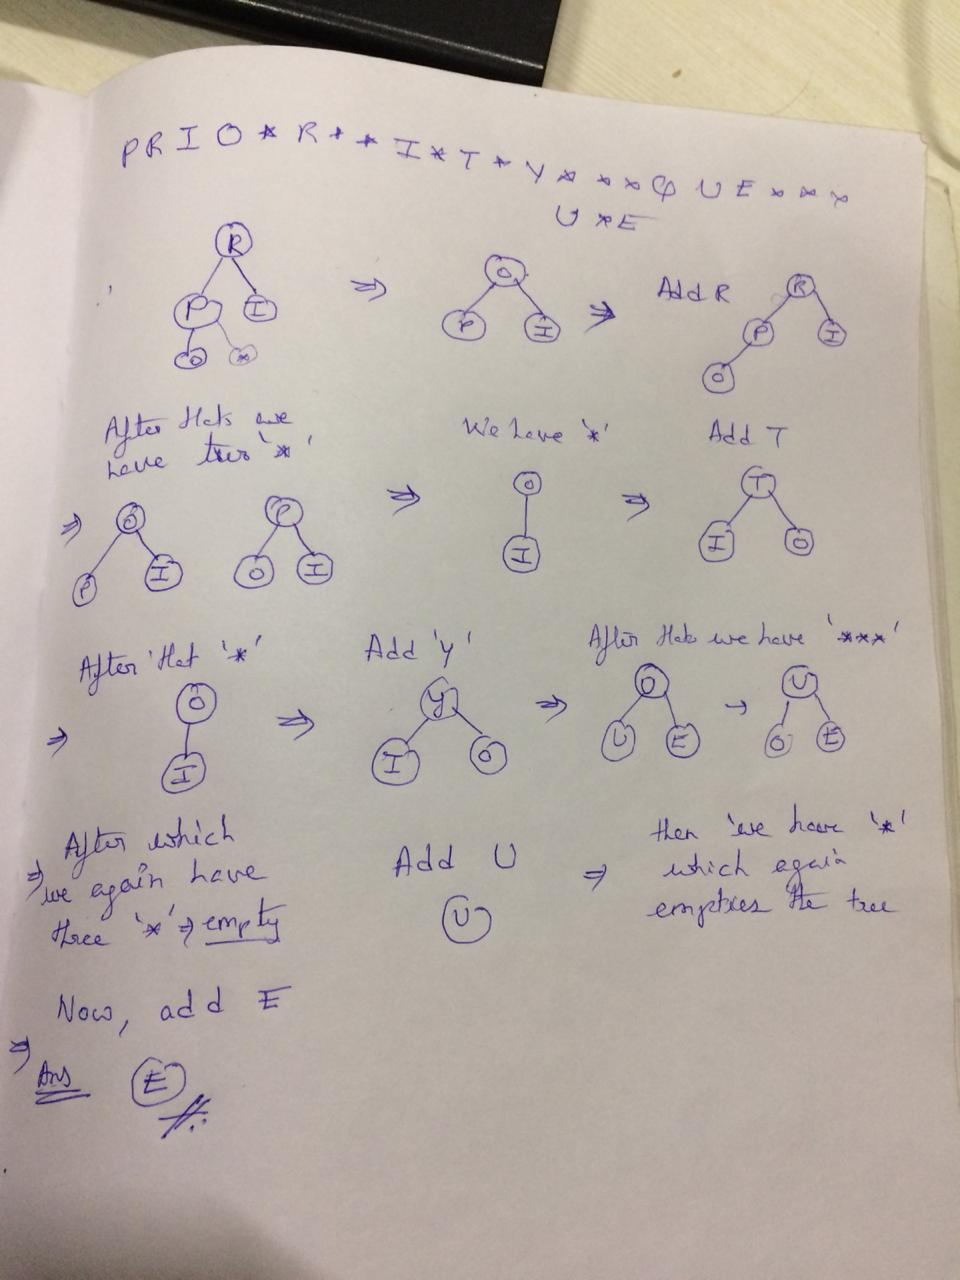 P R I O * R * * I * T * Y * * * Q U E * * *
U * E
R
P I
O *
⇒
O
P I
⇒
Add R
R
P I
O
After that we
have two '*'
⇒
O
P I
P
O I
⇒
We have '*'
O
I
⇒
Add T
T
I O
After that '*'
⇒
O
I
⇒
Add 'Y'
Y
I O
⇒
After that we have '***'
Q
U E
→
U
Q E
After which
⇒ we again have
three '*' ⇒ empty
Add U
U
⇒
then we have '*'
which again
empties the tree
Now, add E
⇒
Ans E